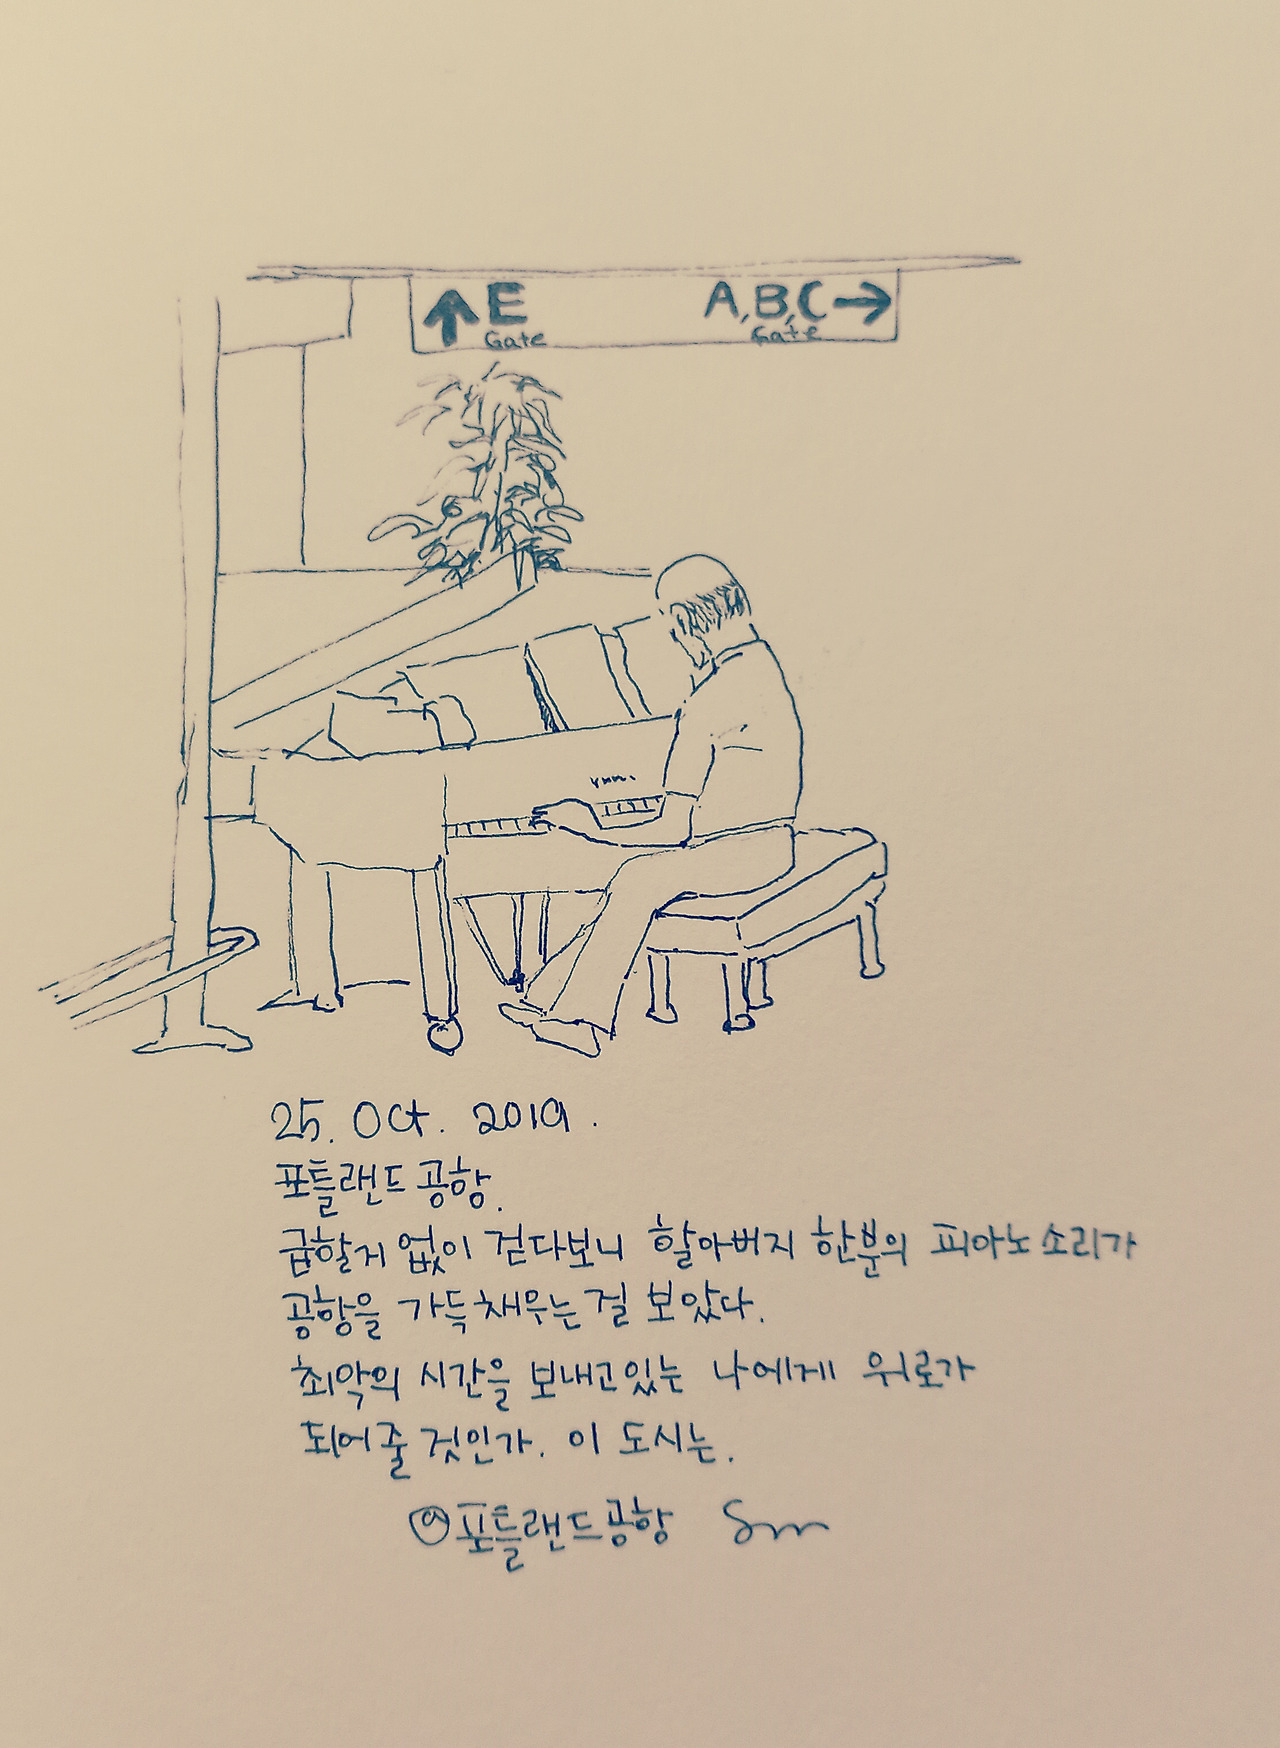 ↑ E A,B,C →
Gate Gate
25. Oct. 2019.
포틀랜드 공항.
급할거 없이 걷다보니 할아버지 한분의 피아노 소리가
공항을 가득채우는걸 보았다.
최악의 시간을 보내고있는 나에게 위로가
되어줄 것인가. 이 도시는.
@포틀랜드공항